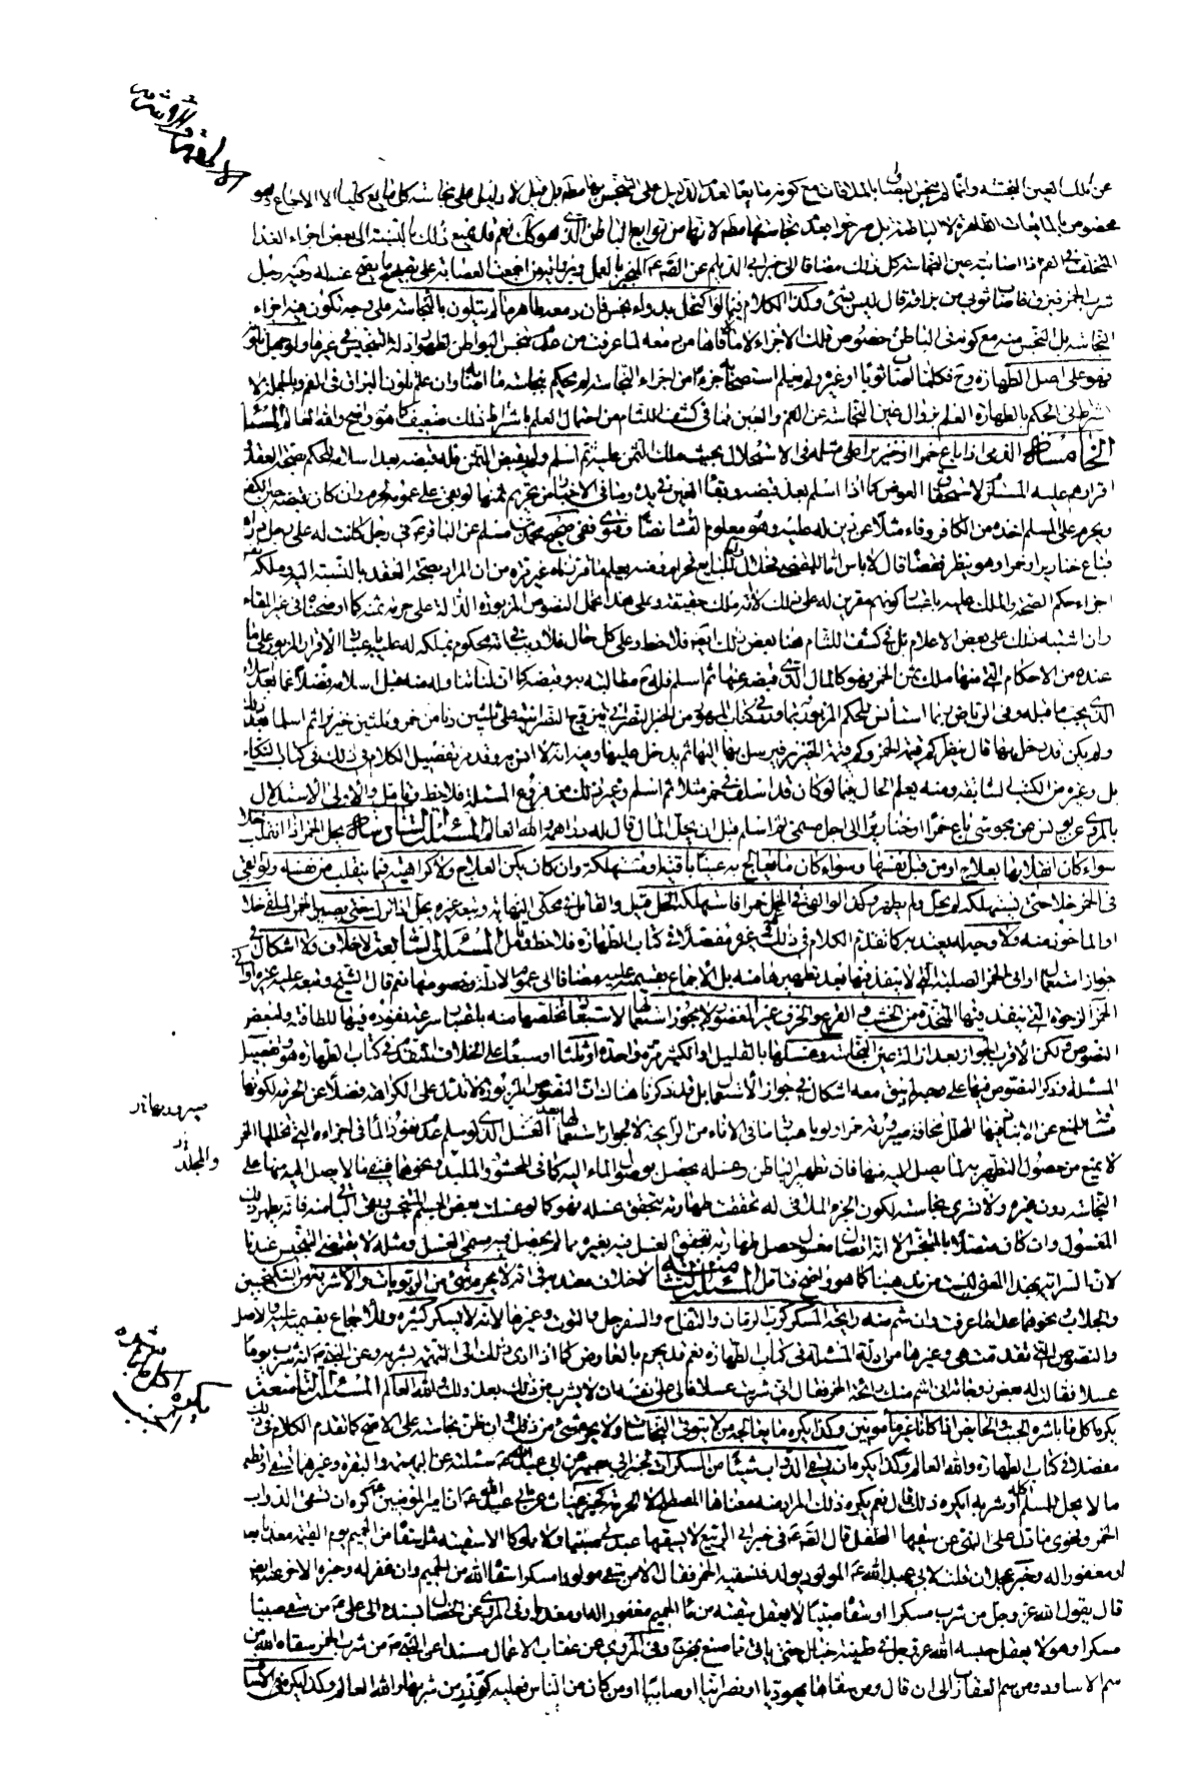 عن تلك العين النجسة وانما لم ينجس بصاقه بالملاقات مع كونه مايعا لعدم الدليل على التنجس بها مطلقا بل قيل لا دليل على نجاسة كل مايع كليا الا الاجماع وهو
مخصوص بالمايعات الظاهرة لا الباطنة بل صرحوا بعدم نجاستها مطلقا لانها من توابع الباطن الذي هو كك نعم قد يمنع ذلك بالنسبة الى بعض اجزاء الغذا
المتخلف في الفم اذا اصابته عين النجاسة كل ذلك مضافا الى خبر ابي الديلم عن الصادق المنجبر بالعمل وبرواية من اجمعت العصابة على تصحيح ما يصح عنه له رجل
شرب الخمر فبزق فاصاب ثوبي من بزاقه قال ليس بشئ وكذا الكلام فيما لو اكتحل بدواء نجس فان دمعه طاهر ما لم يتلون بالنجاسة على وجه تكون فيه اجزاء
النجاسة بل التنجس منه مع كونه في الباطن خصوص تلك الاجزاء لا ما لاقاها من دمعه لما عرفت من عدم تنجس البواطن لظهور ادلة التنجيس في غيرها ولو جهل تلونه
فهو على اصل الطهارة وح فكلما اصاب ثوبا او غيره ولم يعلم استصحابه جزء من اجزاء النجاسة لم يحكم بنجاسة ما اصابه وان علم تلون البزاق في الفم وبالجملة لا
اشتراط في الحكم بالطهارة العلم بزوال عين النجاسة عن الفم والعين فما في كشف اللثام من احتمال العلم باشتراط ذلك ضعيف كما هو واضح والله العالم المسئلة
الخامسة الذمي اذا باع خمرا او خنزيرا على مثله في الاستحلال بحيث ملك الثمن عليه ثم اسلم ولم يقبض الثمن فله قبضه بعد اسلامه للحكم بصحة العقد
اقرارهم عليه المستلزم لاستحقاق العوض كما اذا اسلم بعد قبضه وبقاء العين في يده وما في الاخبار من تحريم ثمنها لو بقى على عمومه لحرم وان كان قبضه حين الكفر
ويحرم على المسلم اخذه من الكافر وفاء مثلا عن دين له عليه وهو معلوم الفساد نصا وفتوى ففي صحيح محمد بن مسلم عن الباقر في رجل كانت له على رجل دراهم
فباع خنازير او خمرا وهو ينظر فقضاه قال لا باس اما للمقتضي فحلال واما للبايع فحرام ومنه يعلم ما قررناه غير مرة من ان المراد بصحة العقد بالنسبة اليه وملكه
اجراء حكم الصحة والملك عليه باعتبار كونهم مقرين له على ذلك لا انه ملك حقيقة وعلى هذا تحمل النصوص المزبورة الدالة على حرمة ثمنه كما اوضحناه في غير المقام
وان اشتبه ذلك على بعض الاعلام بل في كشف اللثام هنا بعض ذلك ايضا فلاحظ وعلى كل حال فلا ريب في انه محكوم بملكه له عليه باعتبار الاقرار المزبور على ما
عنده من الاحكام التي منها ملك ثمن الخمر فهو كالمال الذي قبضه عنها ثم اسلم فله ح مطالبته به وقبضه كما ان لنا تناوله منه قبل اسلامه فضلا عما بعد اسلامه
الذي يجب ما قبله وفي الرياض ربما استانس للحكم المزبور بما ورد في كتاب المهور من الخبر النصراني يتزوج النصرانية على ثلثين دنا من خمر وثلثين خنزيرا ثم اسلما بعد ذلك
ولم يكن قد دخل بها قال ينظر كم قيمة الخمر وكم قيمة الخنزير فيرسل بها اليها ثم يدخل عليها وفيه انه لا انس به وقد مر تفصيل الكلام في ذلك في كتاب النكاح
بل وغيره من الكتب السابقة ومنه يعلم الحال فيما لو كان قد اسلف في خمر مثلا ثم اسلم وغير ذلك من فروع المسئلة فلاحظ وتامل والاولى الاستدلال
بالمروي عن يونس عن مجوسي باع خمرا او خنازير الى اجل مسمى ثم اسلم قبل ان يحل المال قال له دراهمه والله العالم المسئلة السادسة يحل الخمر اذا انقلب خلا
سواء كان انقلابها بعلاج او من قبل نفسها وسواء كان ما يعالج به عينا باقية او مستهلكة وان كان يكره العلاج ولا كراهية فيما ينقلب من نفسه ولو القي
في الخمر خلا حتى تستهلكه لم يحل ولم يطهر وكذا لو القي في الخل خمرا فاستهلكه الخل وقيل والقائل فيما حكى النهاية وتبعه غيره يحل اذا ترك حتى يصير الخمر الملقى خلا
او الماخوذ منه ولا وجه له يعتد به كما تقدم الكلام في ذلك في غيره مفصلا في كتاب الطهارة فلاحظ وتامل المسئلة السابعة لا خلاف ولا اشكال في
جواز استعمال اواني الخمر الصلبة التي لا ينفذ فيها بعد تطهيرها منه بل الاجماع بقسميه عليه مضافا الى عموم الادلة وخصوصها نعم قال الشيخ وتبعه عليه غيره اواني
الخمر الرخوة التي ينفذ فيها المتخذة من الخشب والقرع والخزف غير المغضور لا يجوز استعمالها لاستبعاد تخلصها منه باعتبار سرعة نفوذه فيها للطافته ولبعض
النصوص لكن الاقرب الجواز بعد ازالة عين النجاسة وغسلها بالقليل او الكثير مرة واحدة او ثلثا او سبعا على الخلاف المتقدم في كتاب الطهارة هو وتفصيل
المسئلة وذكر النصوص فيها على وجه لم يبق معه اشكال في جواز الاستعمال بل قد ذكرنا هناك ان النصوص المزبورة لا تدل على الكراهة فضلا عن الحرمة لكونها
مساقة للمنع عن الانتباذ فيها المحتمل مخافة صيرورته خمرا ولو باعتبار ما في الاناء من الرايحة لا يجوز استعمالها بعد الغسل الذي لو سلم عدم نفوذ الماء في اجزاءه التي تخللها الخمر
لا يمنع من حصول التطهير به لما يصل اليه منها فان تطهير الباطن وغسله يحصل بوصول الماء اليه كما في المحشو والملبد ونحوهما فيبقى ما لا يصل اليه منها على
النجاسة دون غيره ولا تسري نجاسته لكون الجزء الملاقي له تحققت طهارته بتحقق غسله فهو كما لو غسلت بعض الجسم المتنجس وبقي الباقي منه فانه يطهر ذلك
المغسول وان كان متصلا بالمتنجس الا انه اتصال مغسول حصل طهارته بتحقق الغسل فيه بغيره مما لم يحصل فيه مسمى الغسل ومثله لا يقتضي التنجيس عندنا
لان السراية بهذا المعنى ليست من مذهبنا كما هو واضح فتامل المسئلة الثامنة لا خلاف معتد به في انه لا يحرم شئ من الربوبات والاشربة من السكنجبين
والجلاب ونحوهما عدا ما عرفت وان شم منه رايحة المسكر كرب الرمان والتفاح والسفرجل والتوت وغيرها لانه لا يسكر كثيره وللاجماع بقسميه عليه والاصل
والنصوص التي تقدمت هي وغيرها من ادلة المسئلة في كتاب الطهارة نعم قد يحرم بالعارض كما اذا ادى ذلك الى التهمة بشربه وعن الخدم انه شرب يوما
عسلا فقال له بعض زوجاته اني اشم منك رائحة الخمر فقال اني شربت عسلا فالى على نفسه ان لا يشرب من ذلك بعد ذلك والله العالم المسئلة التاسعة
يكره اكل ما باشره الجنب والحائض اذا كانا غير مامونين وكذا يكره ما يعالجه من لا يتوقى النجاسات ولا يحرم شئ من ذلك وان ظن نجاسته على الاصح كما تقدم الكلام في ذلك
مفصلا في كتاب الطهارة والله العالم وكذا يكره ان يسقي الدواب شيئا من المسكرات لخبر ابي بصير عن ابي عبد الله سئلته عن البهيمة والبقرة وغيرها تسقى او تطعم
ما لا يحل للمسلم اكله او شربه ايكره ذلك قال نعم يكره ذلك المراد منه معناها المصطلح لا الحرمة كخبر غياث عن ابي عبد الله ان امير المؤمنين كره ان تسقى الدواب
الخمر وفحوى ما دل على النهي عن سقيها الطفل قال الصادق في خبر ابي الربيع لا يسقيها عبد لي صبيا ولا مملوكا الا سقيته مثل ما سقاه من الحميم يوم القيمة معذبا بعد
او مغفورا له وخبر عجلان قلت لابي عبد الله المولود يولد فنسقيه الخمر فقال لا من سقى مولودا مسكرا سقاه الله من الحميم وان غفر له وخبره الاخر عنه ايضا
قال يقول الله عز وجل من شرب مسكرا او سقاه صبيا لا يعقل سقيته من ماء الحميم مغفورا له او معذبا وفي المروي عن الخصال بسنده الى علي من سقى صبيا
مسكرا وهو لا يعقل حبسه الله عز وجل في طينة خبال حتى ياتي مما صنع بمخرج وفي المروي عن عقاب الاعمال مسندا عن النبي من شرب الخمر سقاه الله من
سم الاساود ومن سم العقارب الى ان قال ومن سقاها يهوديا او نصرانيا او صابيا او من كان من الناس فعليه كوزر من شربها والله العالم وكذا يكره في الاشيا